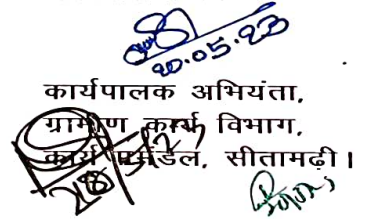 20.05.23
कार्यपालक अभियंता,
ग्रामीण कार्य विभाग,
कार्य प्रमंडल, सीतामढ़ी।